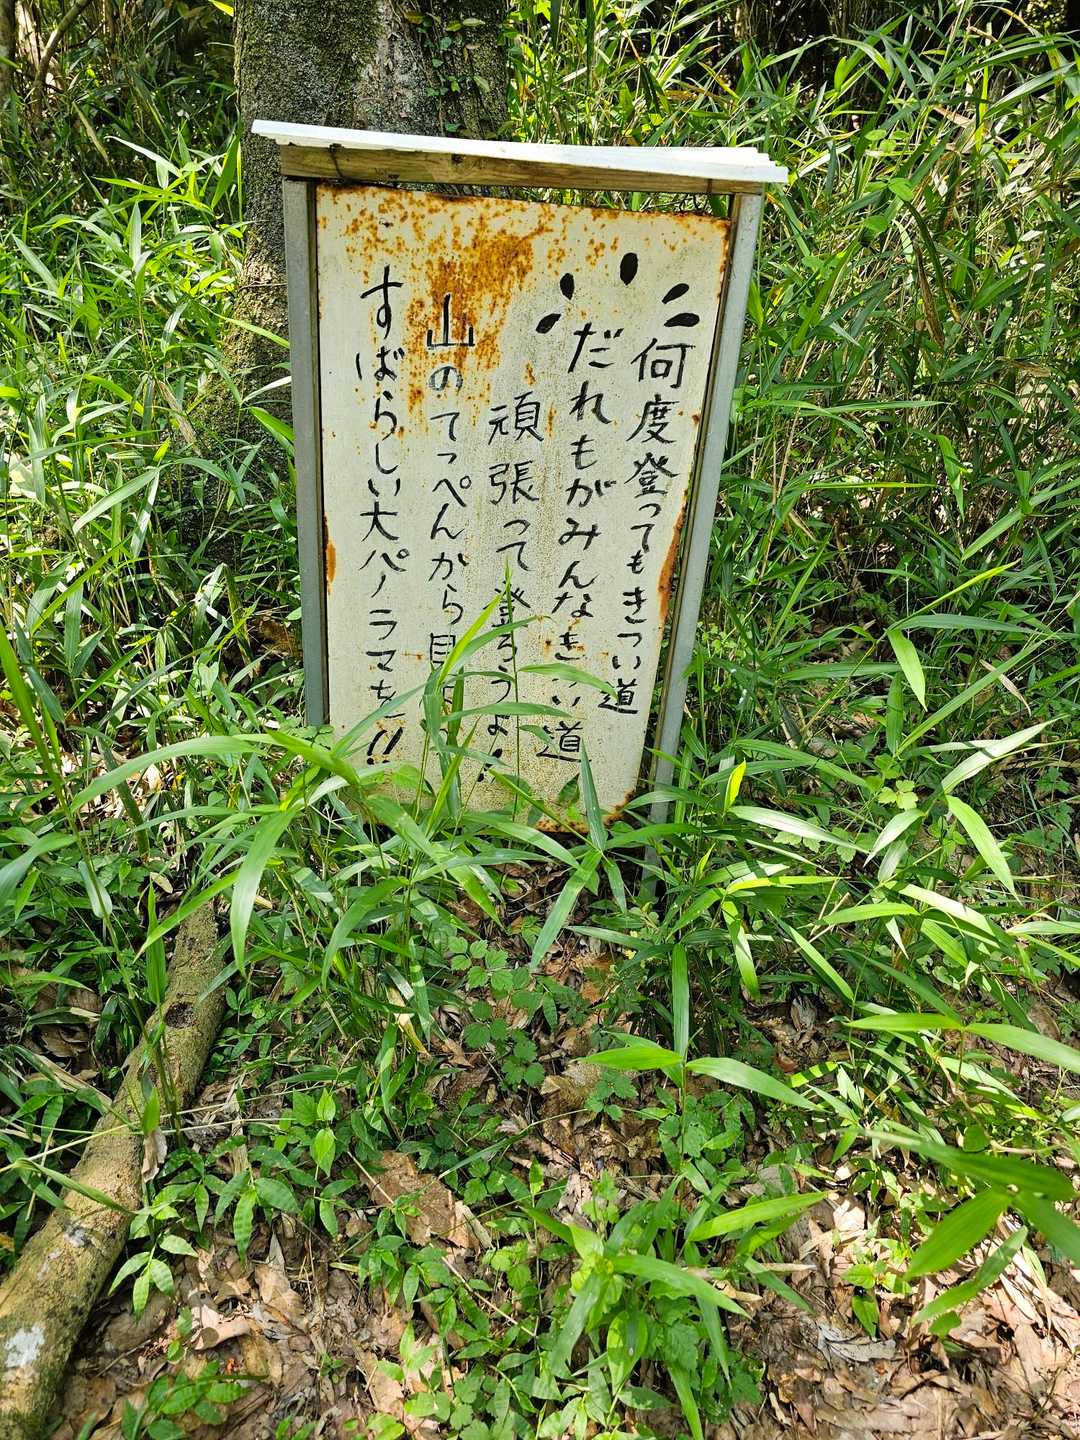 何度登ってもきつい道
だれもがみんなきつい道
頑張って登ろうよ!
山のてっぺんから見
すばらしい大パノラマを!!